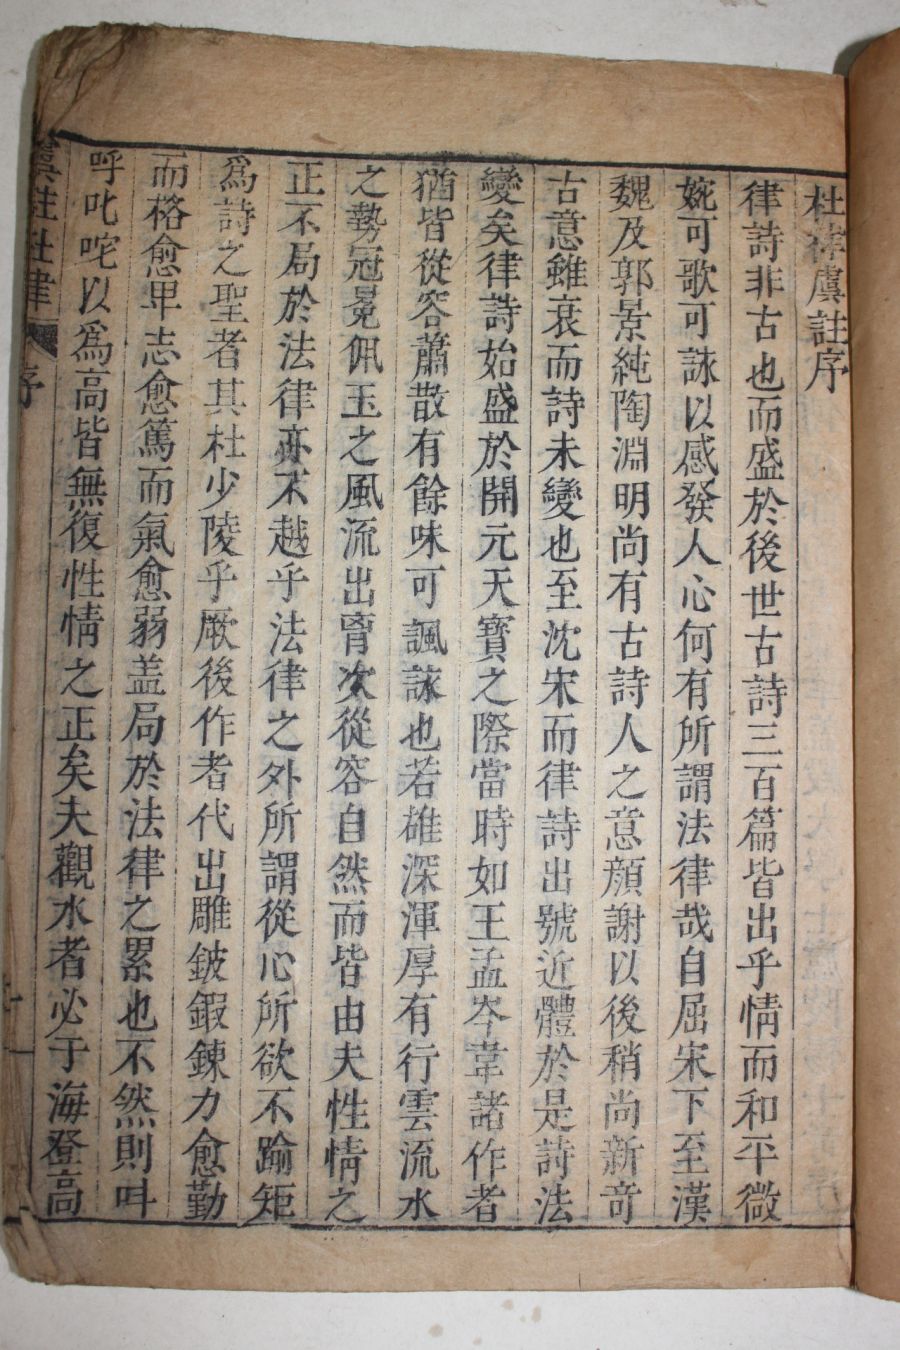 杜律虞註序
律詩非古也而盛於後世古詩三百篇皆出乎情而和平微
婉可歌可詠以感發人心何有所謂法律哉自屈宋下至漢
魏及郭景純陶淵明尚有古詩人之意顔謝以後稍尚新竒
古意雖衰而詩未變也至沈宋而律詩出號近體於是詩法
變矣律詩始盛於開元天寶之際當時如王孟岑韋諸作者
猶皆從容蕭散有餘味可諷詠也若雄深渾厚有行雲流水
之勢冠冕佩玉之風流出胷次從容自然而皆由夫性情之
正不局於法律亦不越乎法律之外所謂從心所欲不踰矩
爲詩之聖者其杜少陵乎厥後作者代出雕鈹鍜鍊力愈勤
而格愈卑志愈篤而氣愈弱盖局於法律之累也不然則呌
呼叱咤以爲高皆無復性情之正矣夫觀水者必于海登高
虞註杜律 序